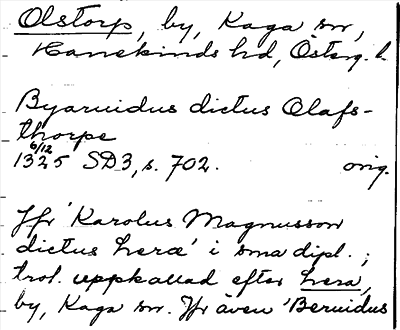 Olstorp, by, Kaga sn,
Hanekinds hd, Österg. l.
Byaruidus dictus Olafs-
thorpe
6/12
1325 SD3, s. 702. orig.
Jfr 'Karolus Magnusson
dictus heræ' i sma dipl.;
trol. uppkallad efter Hera,
by, Kaga sn. Jfr även 'Beruidus